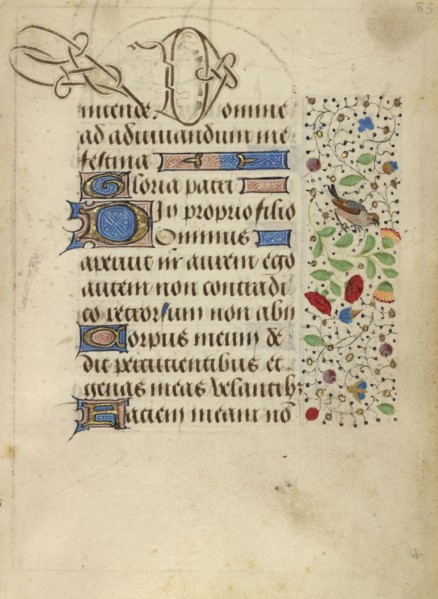 85
intende. Domine
ad adiuuandum me
festina
Gloria patri
In proprio filio
Dominus
aperuit m aurem ego
autem non contradi
co retrorsum non abii
Corpus meum de
di percutientibus et
genas meas velantib
Faciem meam nō